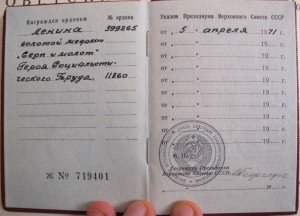 Награжден орденом № ордена
Ленина 399265
золотой медалью
„Серп и молот"
Героя Социалисти-
ческого Труда 11860
Ж № 719401
Указом Президиума Верховного Совета СССР
от „ 5 " апреля 1971
от „ " 19
от „ " 19
от „ " 19
от „ " 19
от „ " 19
от „ " 19
от „ " 19
М. П.
Секретарь Президиума
Верховного Совета СССР
19